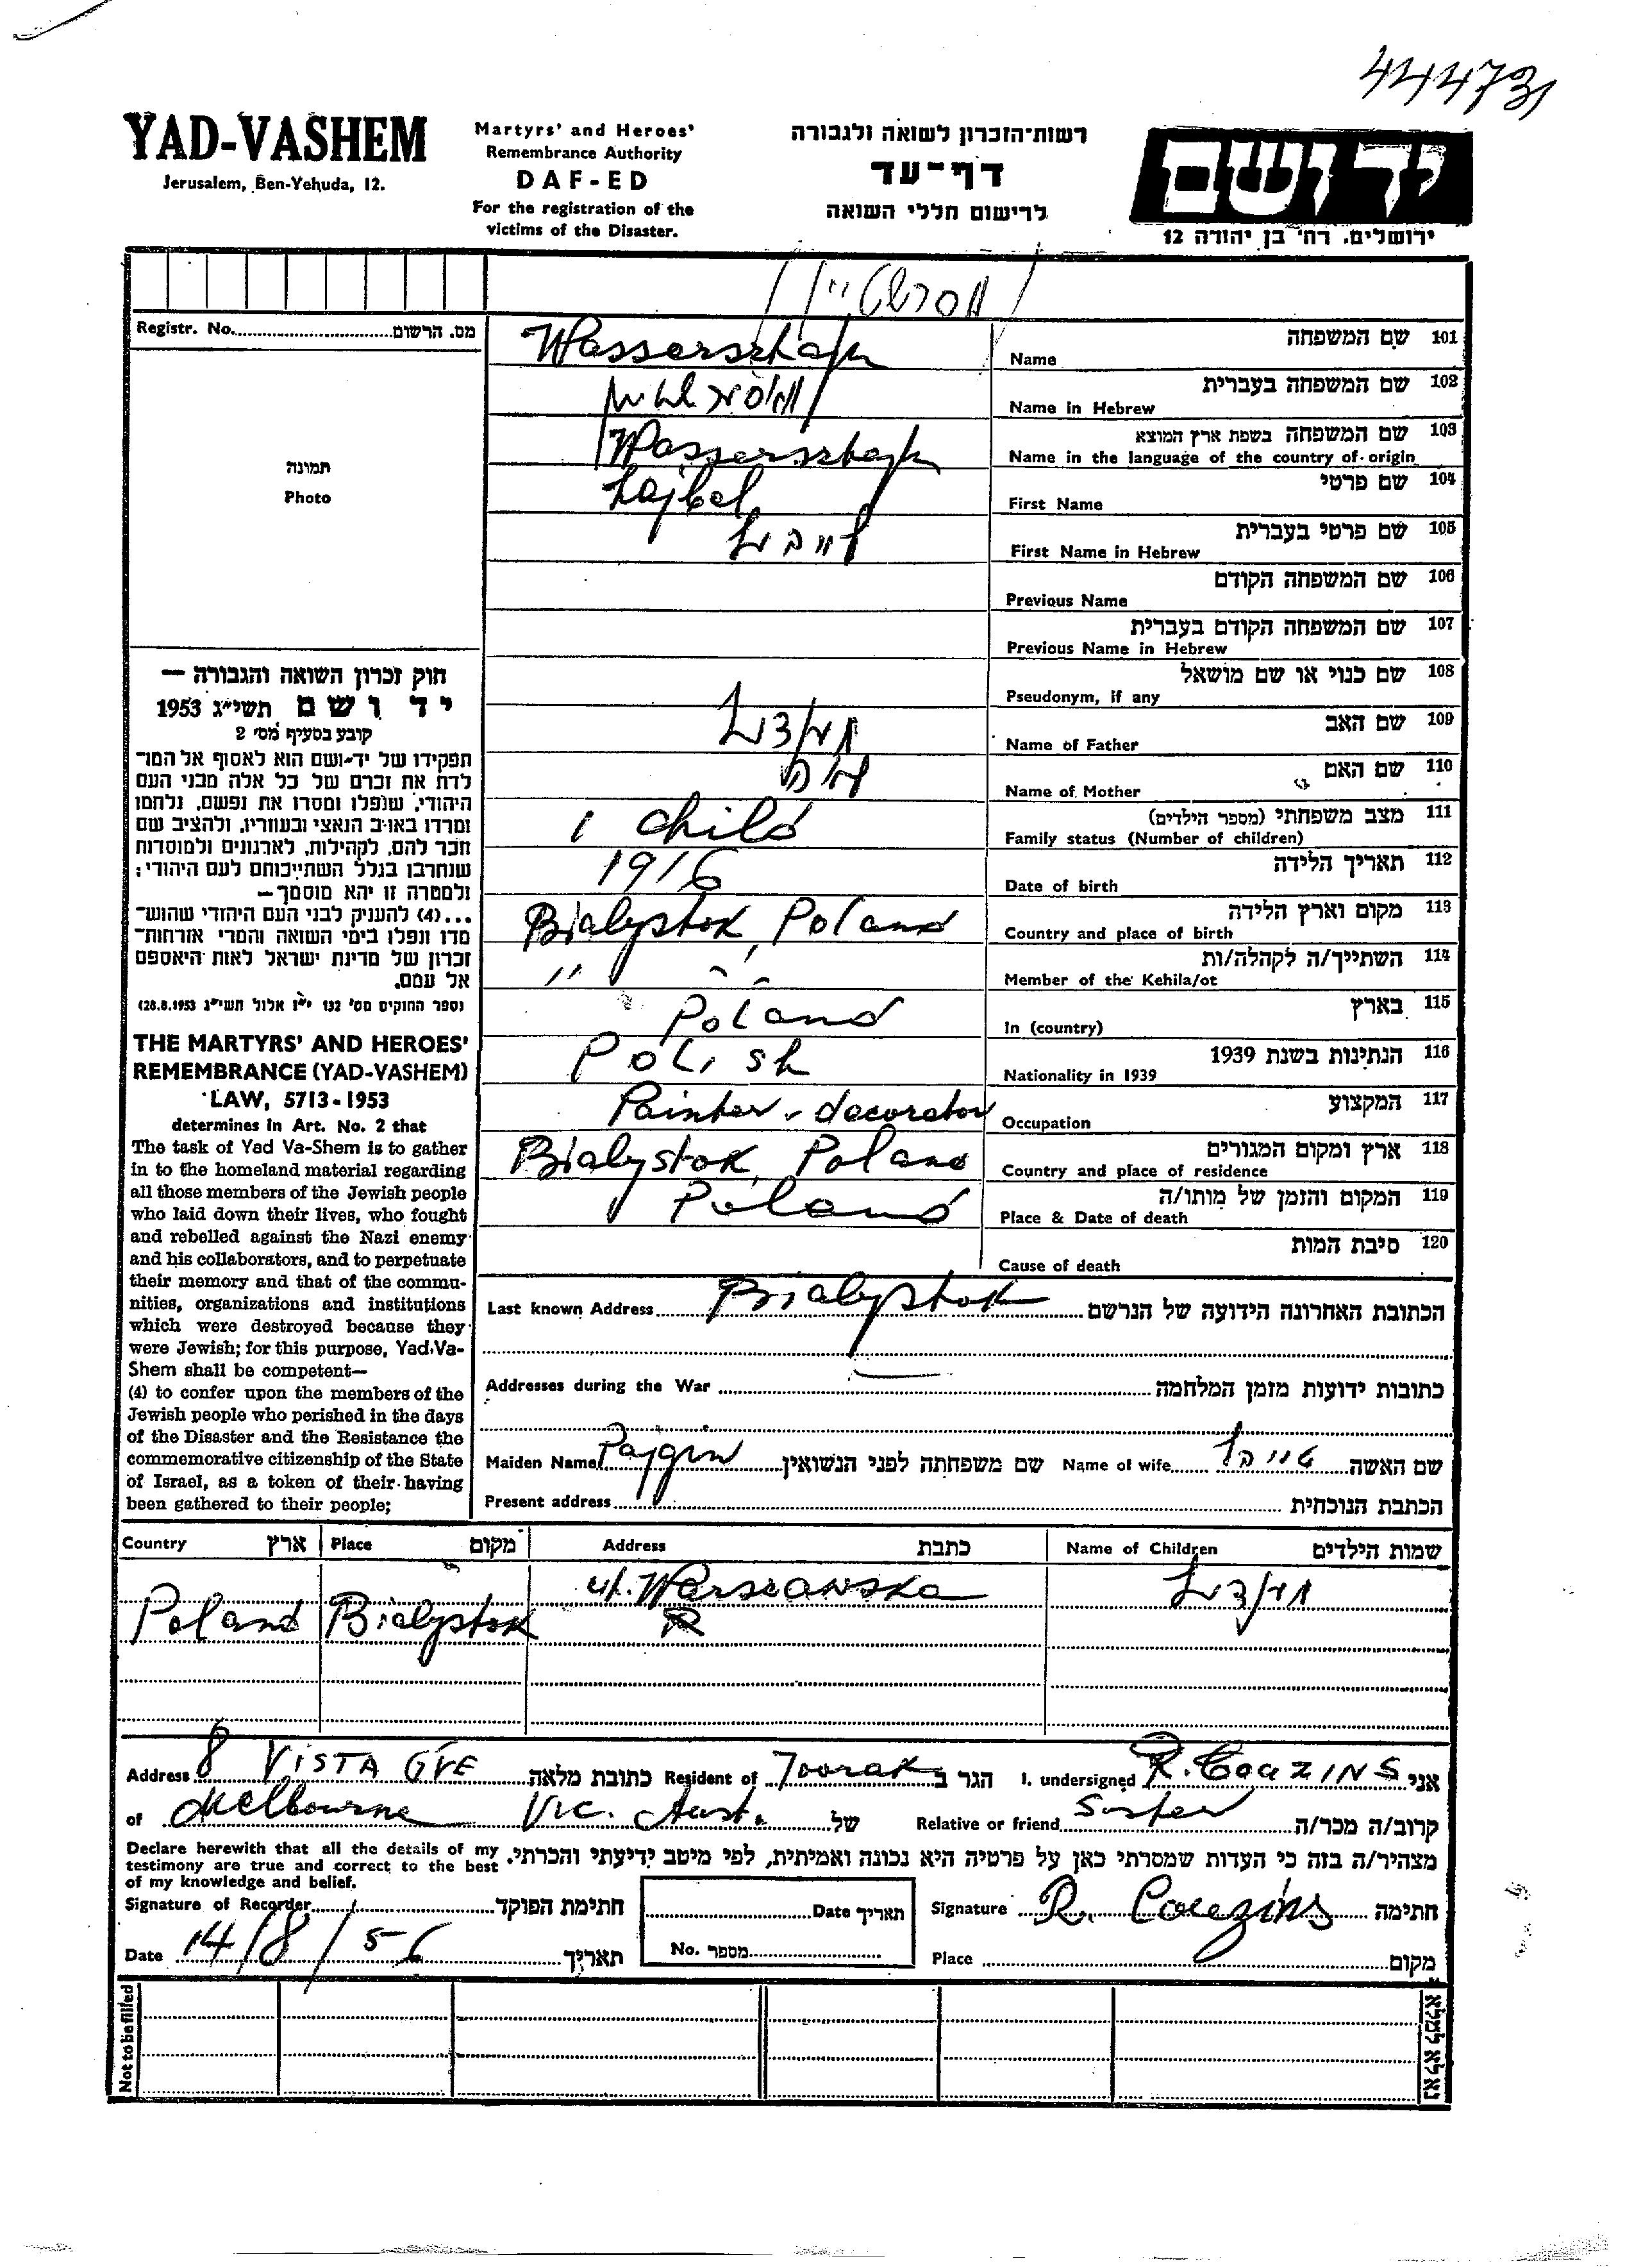 444731
YAD-VASHEM
Jerusalem, Ben-Yehuda, 12.
Martyrs' and Heroes'
Remembrance Authority
DAF-ED
For the registration of the
victims of the Disaster.
רשות־הזכרון לשואה ולגבורה
דף־עד
לרישום חללי השואה
יד ושם
ירושלים, רח' בן יהודה 12
Registr. No. מס. הרשום
תמונה
Photo
שם המשפחה 101
Name
שם המשפחה בעברית 102
Name in Hebrew
Wassersztajn שם המשפחה בשפת ארץ המוצא 103
Name in the language of the country of origin
Lajbel שם פרטי 104
First Name
לייבל שם פרטי בעברית 105
First Name in Hebrew
שם המשפחה הקודם 106
Previous Name
שם המשפחה הקודם בעברית 107
Previous Name in Hebrew
שם כנוי או שם מושאל 108
Pseudonym, if any
שם האב 109
Name of Father
שם האם 110
Name of Mother
1 child מצב משפחתי (מספר הילדים) 111
Family status (Number of children)
1916 תאריך הלידה 112
Date of birth
Bialystok, Poland מקום וארץ הלידה 113
Country and place of birth
" " השתייך/ה לקהלה/ות 114
Member of the Kehila/ot
Poland בארץ 115
In (country)
Polish הנתינות בשנת 1939 116
Nationality in 1939
Painter - decorator המקצוע 117
Occupation
Bialystok, Poland ארץ ומקום המגורים 118
Country and place of residence
Poland המקום והזמן של מותו/ה 119
Place & Date of death
סיבת המות 120
Cause of death
חוק זכרון השואה והגבורה —
יד ושם תשי"ג 1953
קובע בסעיף מס' 2
תפקידו של יד-ושם הוא לאסוף אל המו־
לדת את זכרם של כל אלה מבני העם
היהודי, שנפלו ומסרו את נפשם, נלחמו
ומרדו באויב הנאצי ובעוזריו, ולהציב שם
וזכר להם, לקהילות, לארגונים ולמוסדות
שנחרבו בגלל השתייכותם לעם היהודי;
ולמטרה זו יהא מוסמך—
...(4) להעניק לבני העם היהודי שהוש־
מדו ונפלו בימי השואה והמרי אזרחות־
זכרון של מדינת ישראל לאות היאספם
אל עמם.
(ספר החוקים מס' 132 י"ז אלול תשי"ג 28.8.1953)
THE MARTYRS' AND HEROES'
REMEMBRANCE (YAD-VASHEM)
LAW, 5713-1953
determines in Art. No. 2 that
The task of Yad Va-Shem is to gather
in to the homeland material regarding
all those members of the Jewish people
who laid down their lives, who fought
and rebelled against the Nazi enemy
and his collaborators, and to perpetuate
their memory and that of the commu-
nities, organizations and institutions
which were destroyed because they
were Jewish; for this purpose, Yad Va-
Shem shall be competent—
(4) to confer upon the members of the
Jewish people who perished in the days
of the Disaster and the Resistance the
commemorative citizenship of the State
of Israel, as a token of their having
been gathered to their people;
Last known Address Bialystok הכתובת האחרונה הידועה של הנרשם
Addresses during the War כתובות ידועות מזמן המלחמה
Maiden Name שם משפחתה לפני הנשואין Name of wife טייבל שם האשה
Present address הכתבת הנוכחית
Country ארץ Place מקום Address כתבת Name of Children שמות הילדים
Poland Bialystok ul. Warszawska
Address 8 VISTA GVE כתובת מלאה Resident of Toorak הגר ב I. undersigned R. COUZINS אני
of Melbourne Vic. Aust. של Relative or friend Sister קרוב/ה מכר/ה
Declare herewith that all the details of my
testimony are true and correct to the best
of my knowledge and belief.
מצהיר/ה בזה כי העדות שמסרתי כאן על פרטיה היא נכונה ואמיתית, לפי מיטב ידיעתי והכרתי.
Signature of Recorder חתימת הפוקד Date תאריך Signature R. Couzins חתימה
Date 14/8/56 תאריך No. מספר Place מקום
Not to be filled
נא לא למלא